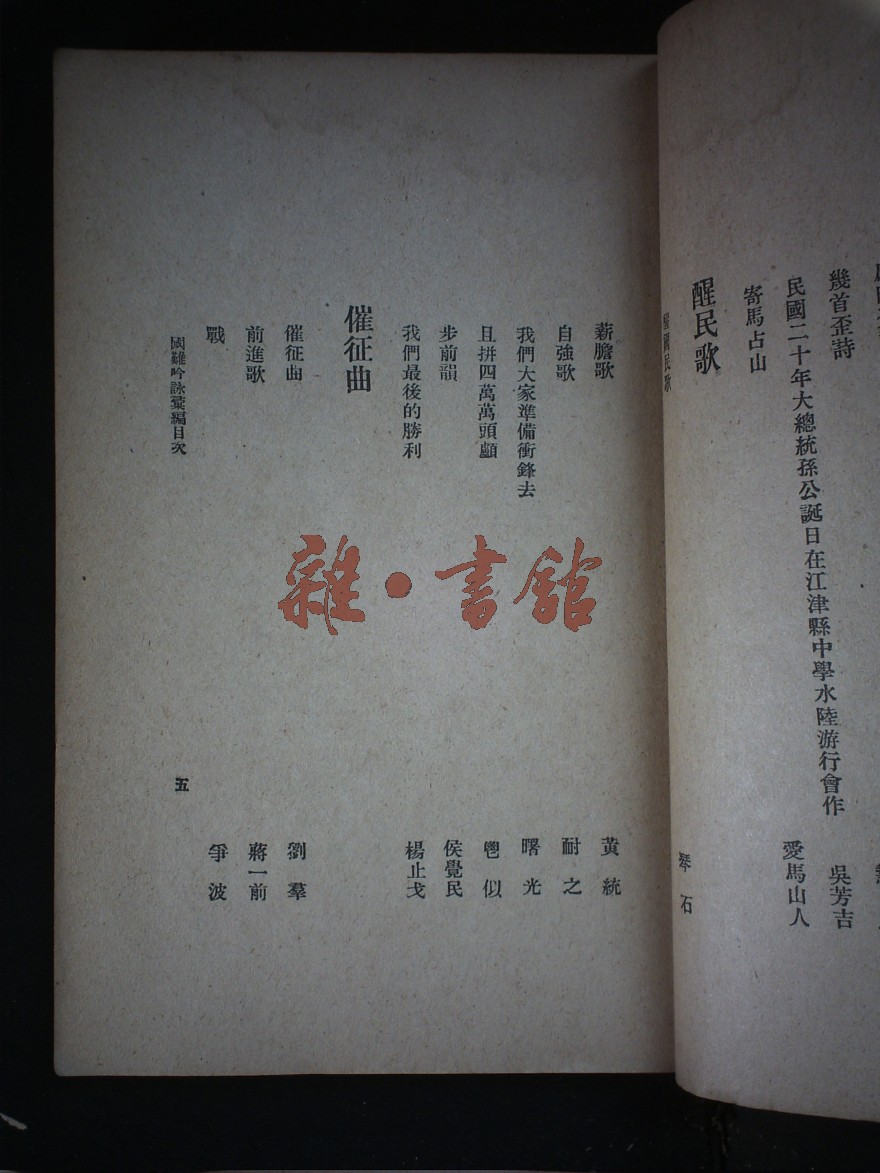 幾首歪詩
民國二十年大總統孫公誕日在江津縣中學水陸游行會作 吳芳吉
寄馬占山 愛馬山人
醒民歌
醒國民歌 琴石
薪膽歌 黃統
自強歌 耐之
我們大家準備衝鋒去 曙光
且拼四萬萬頭顱 鬯似
步前韻 侯覺民
我們最後的勝利 楊止戈
催征曲
催征曲 劉羣
前進歌 蔣一前
戰 爭波
國難吟詠彙編目次 五
雜·書館